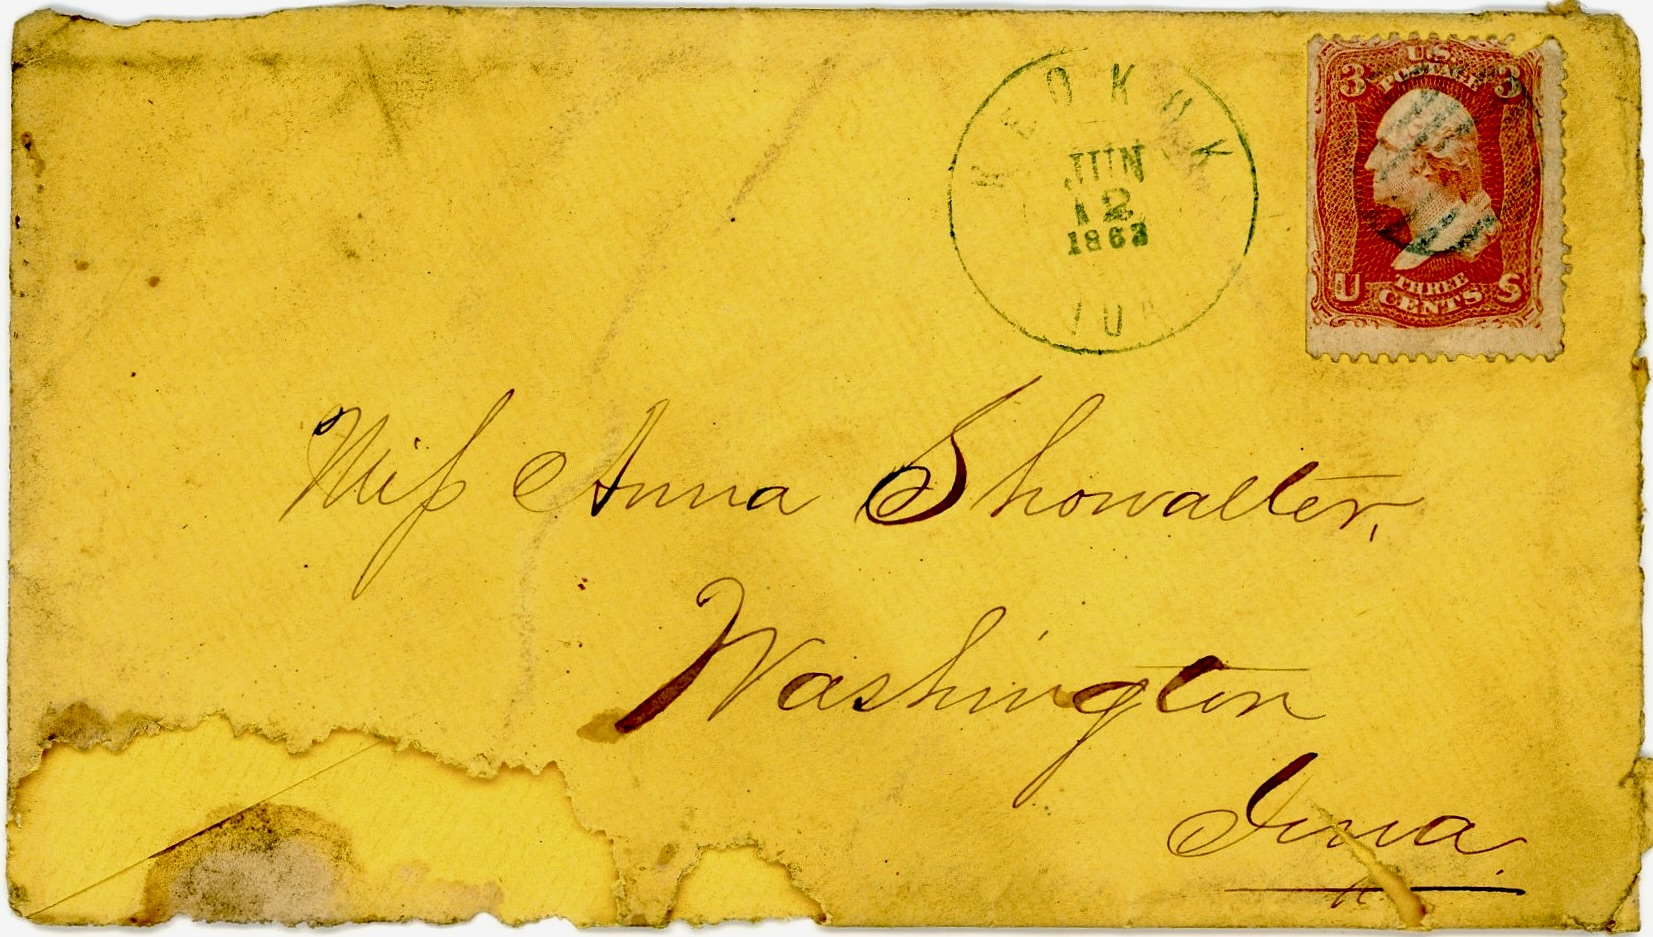 KEOKUK
JUN
12
1863
IOA
3 U.S. 3
POSTAGE
THREE
U CENTS S
Miſs Anna Showalter,
Washington
Iowa.